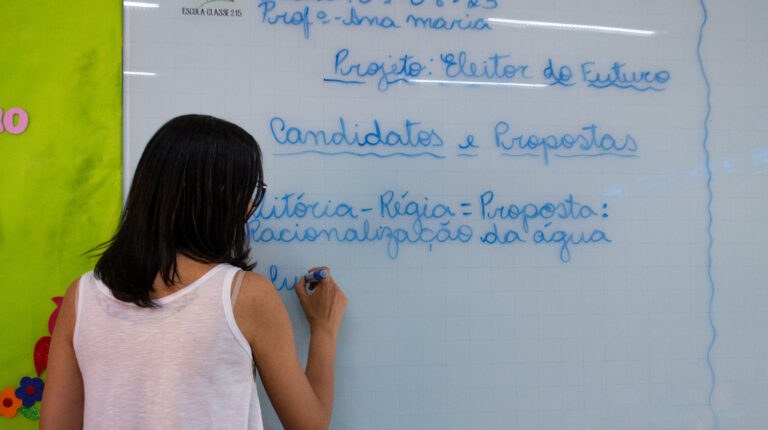 ESCOLA CLASSE 215
Profª - Ana maria
Projeto: Eleitor do Futuro
Candidatos e Propostas
- Régia = Proposta:
Racionalização da água